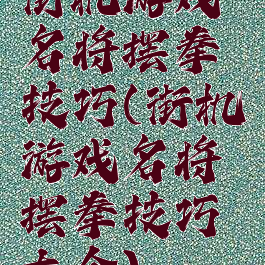 街机游戏
名将摆拳
技巧(街机
游戏名将
摆拳技巧
大全)